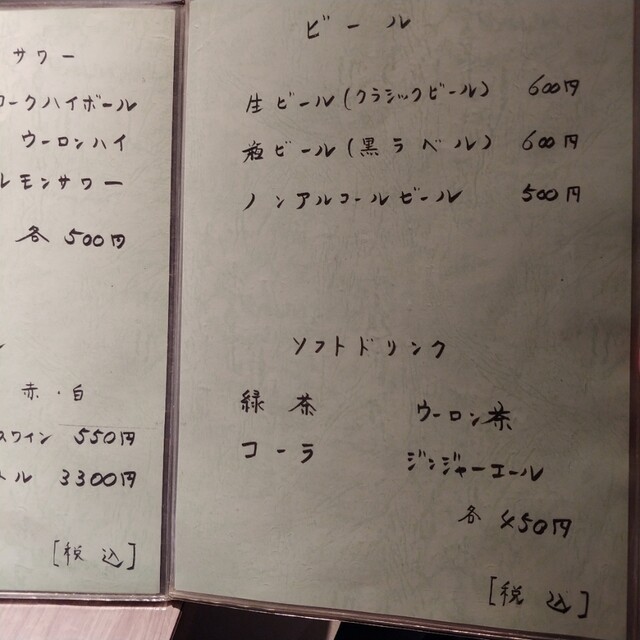 サワー
ークハイボール
ウーロンハイ
レモンサワー
各 500円
赤・白
スワイン 550円
トル 3300円
[税込]
ビール
生ビール(クラシックビール) 600円
瓶ビール(黒ラベル) 600円
ノンアルコールビール 500円
ソフトドリンク
緑茶 ウーロン茶
コーラ ジンジャーエール
各 450円
[税込]